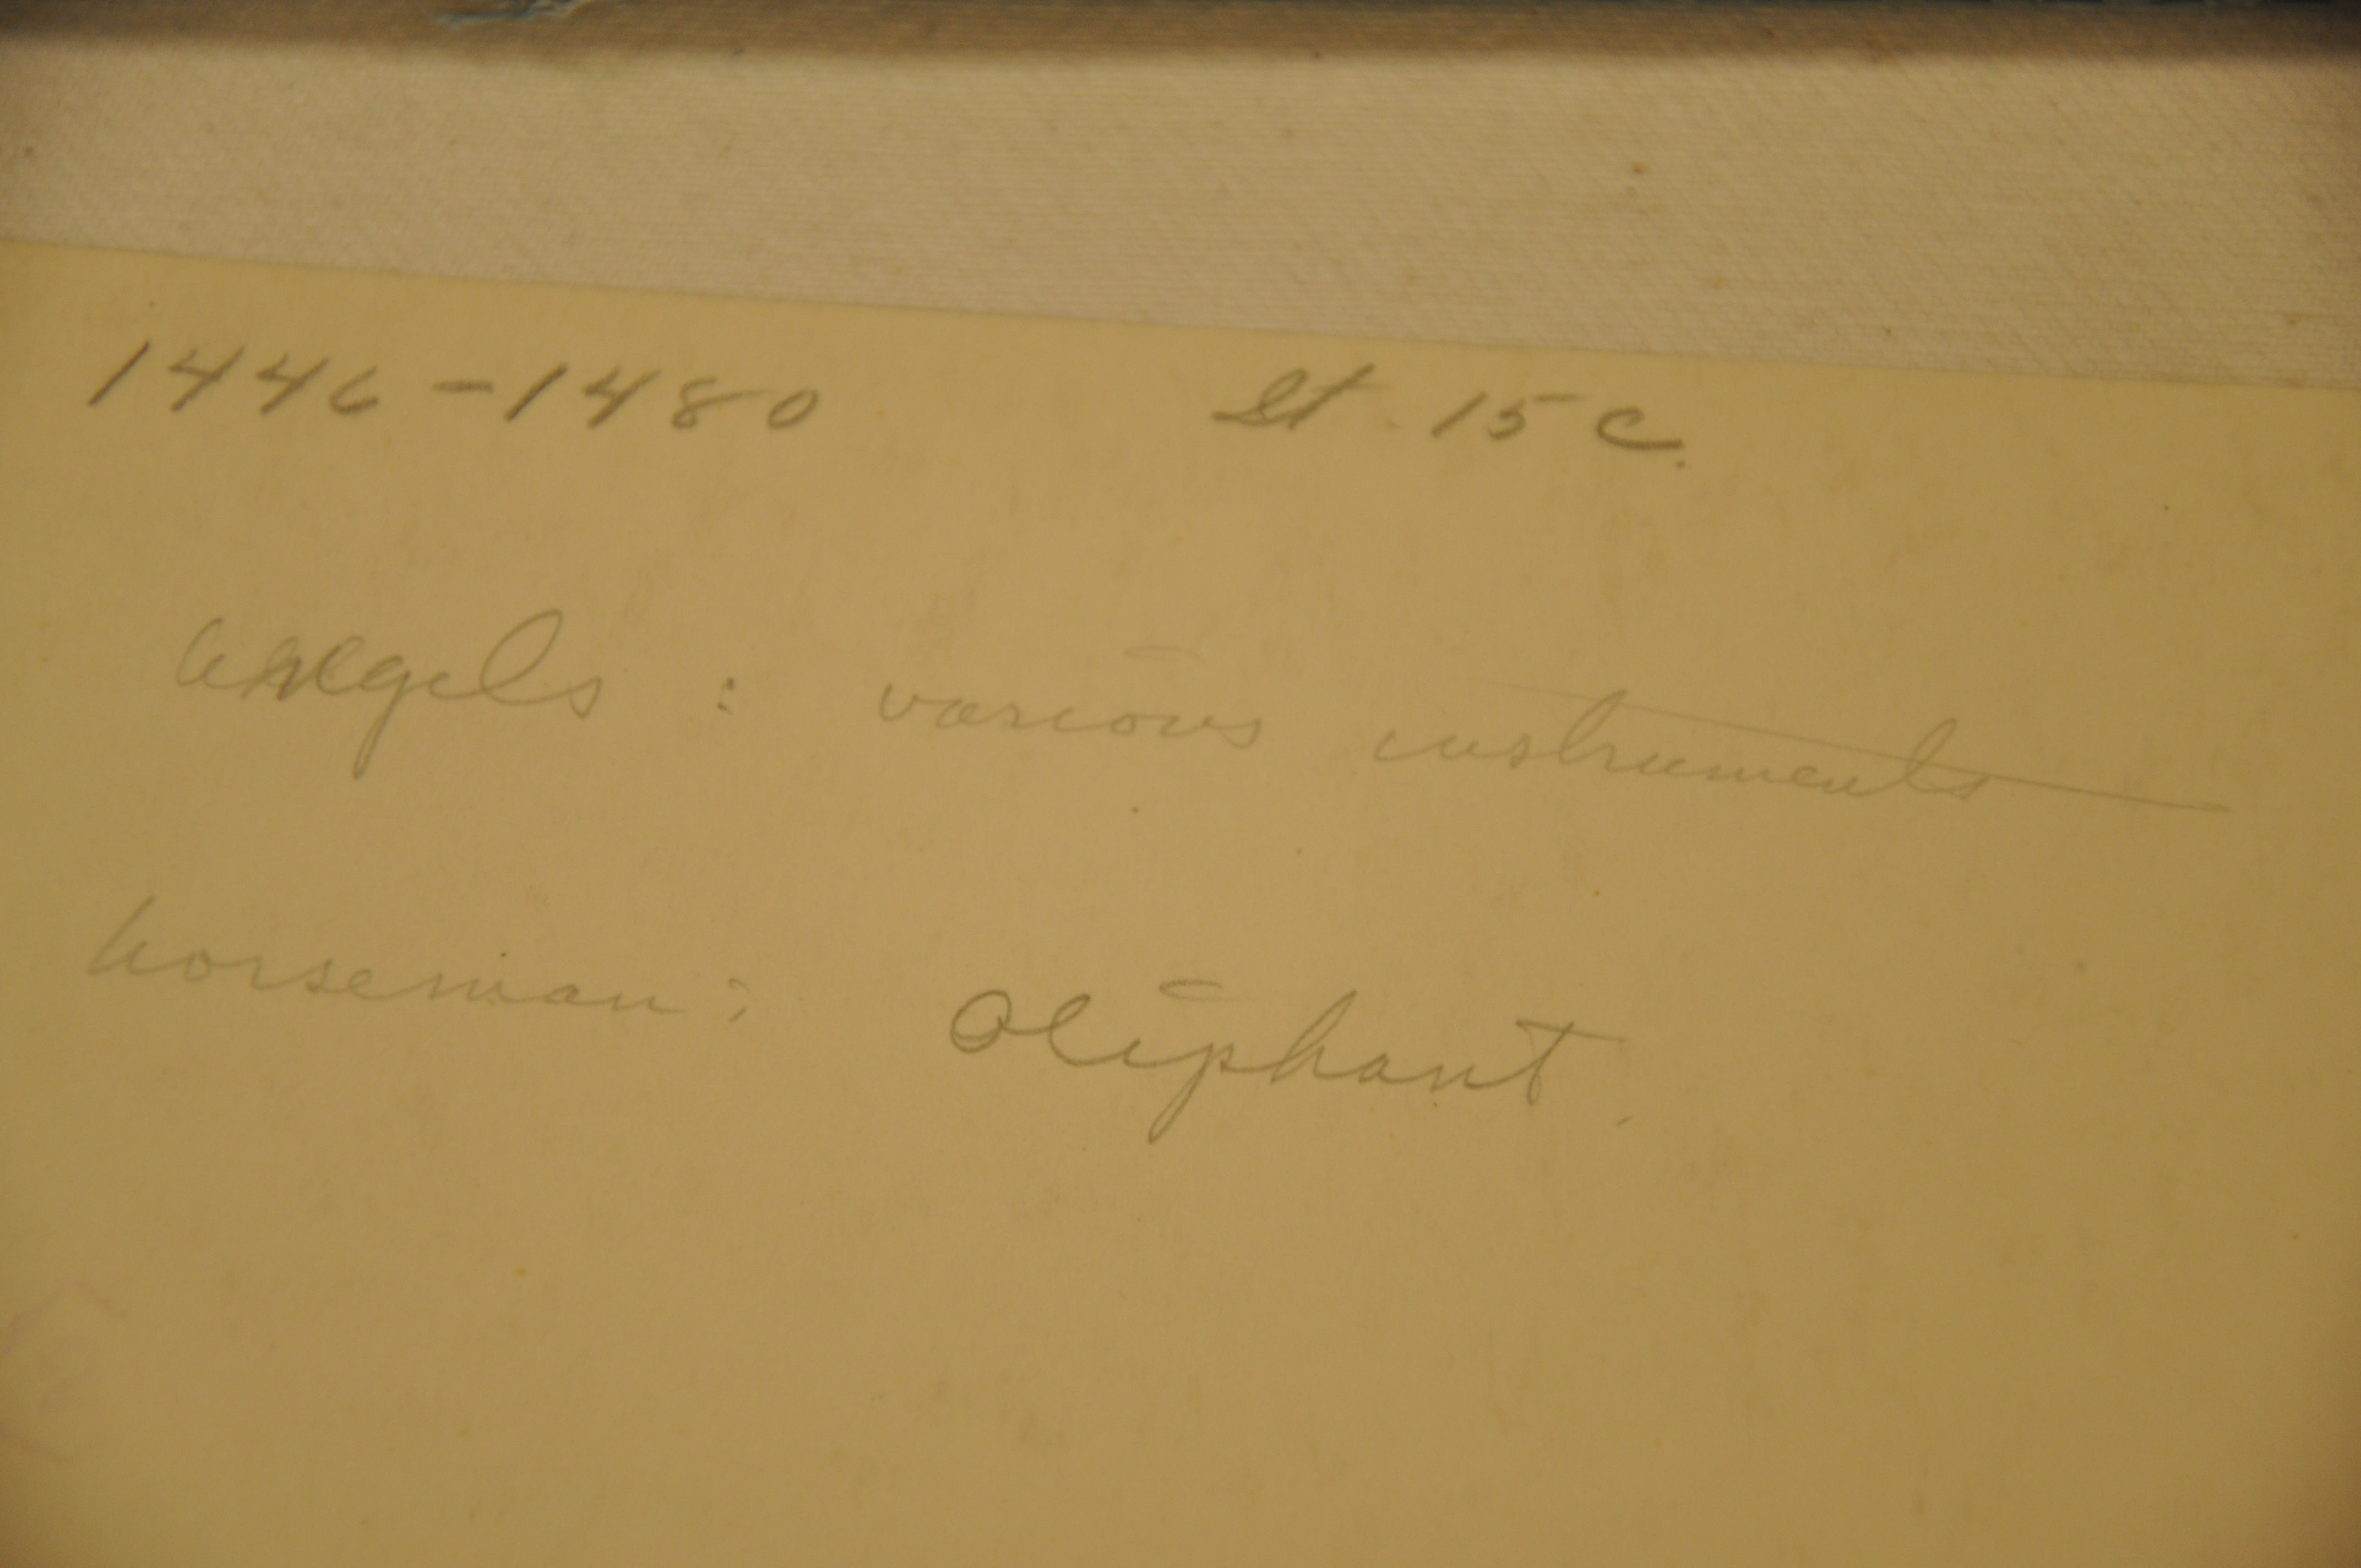 1446-1480 It. 15 c.
angels : various instruments
horseman : Oliphant.